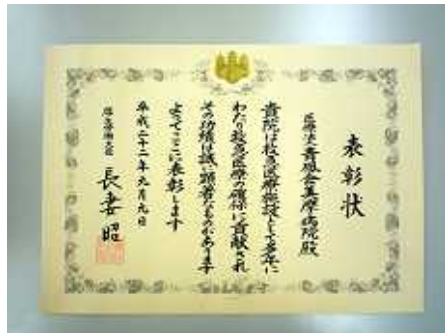 表彰状
医療法人青風会美摩病院殿
貴院は救急医療施設として多年に
わたり救急医療の確保に貢献され
その功績は誠に顕著なものがあります
よってここに表彰します
平成二十二年九月九日
厚生労働大臣 長妻昭